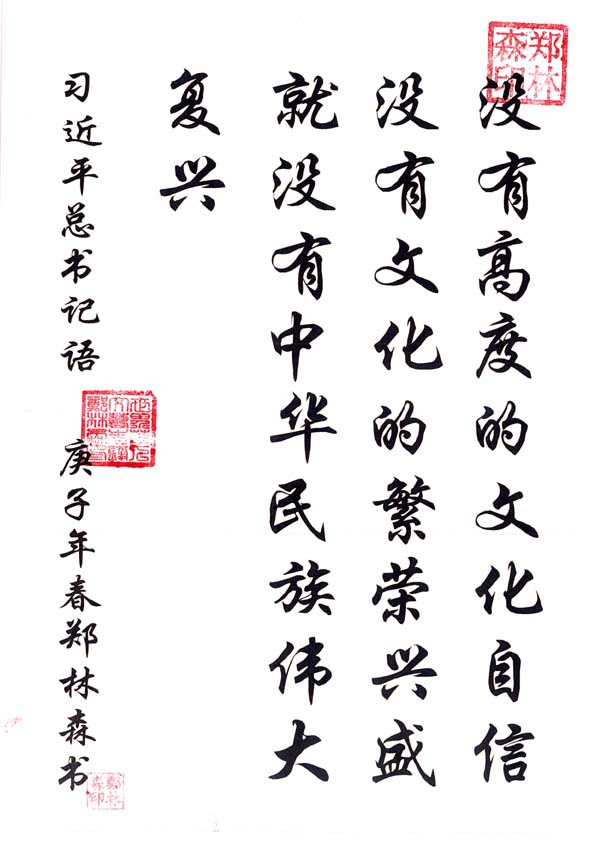 没有高度的文化自信
没有文化的繁荣兴盛
就没有中华民族伟大
复兴
习近平总书记语
庚子年春郑林森书
郑林
森印
鄭林
森印